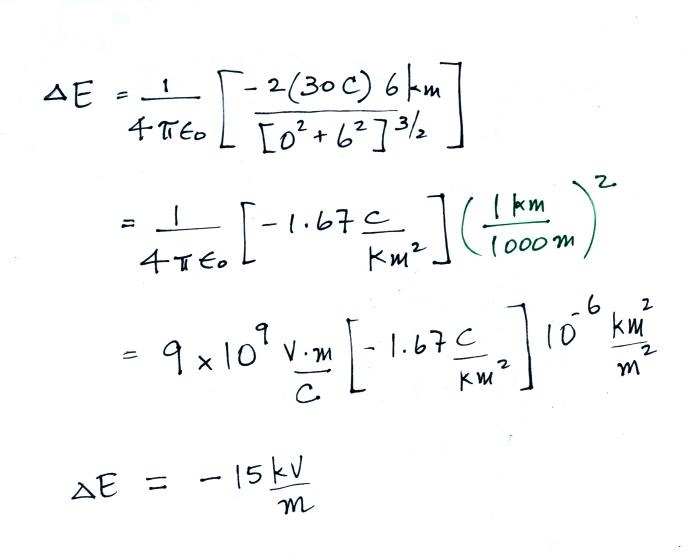 ΔE = 1/4πϵ₀ [ -2(30 C) 6 km / [0² + 6²]^3/2 ]
= 1/4πϵ₀ [ -1.67 C/km² ] ( 1 km / 1000 m )²
= 9 × 10⁹ V·m/C [ -1.67 C/km² ] 10⁻⁶ km²/m²
ΔE = -15 kV/m